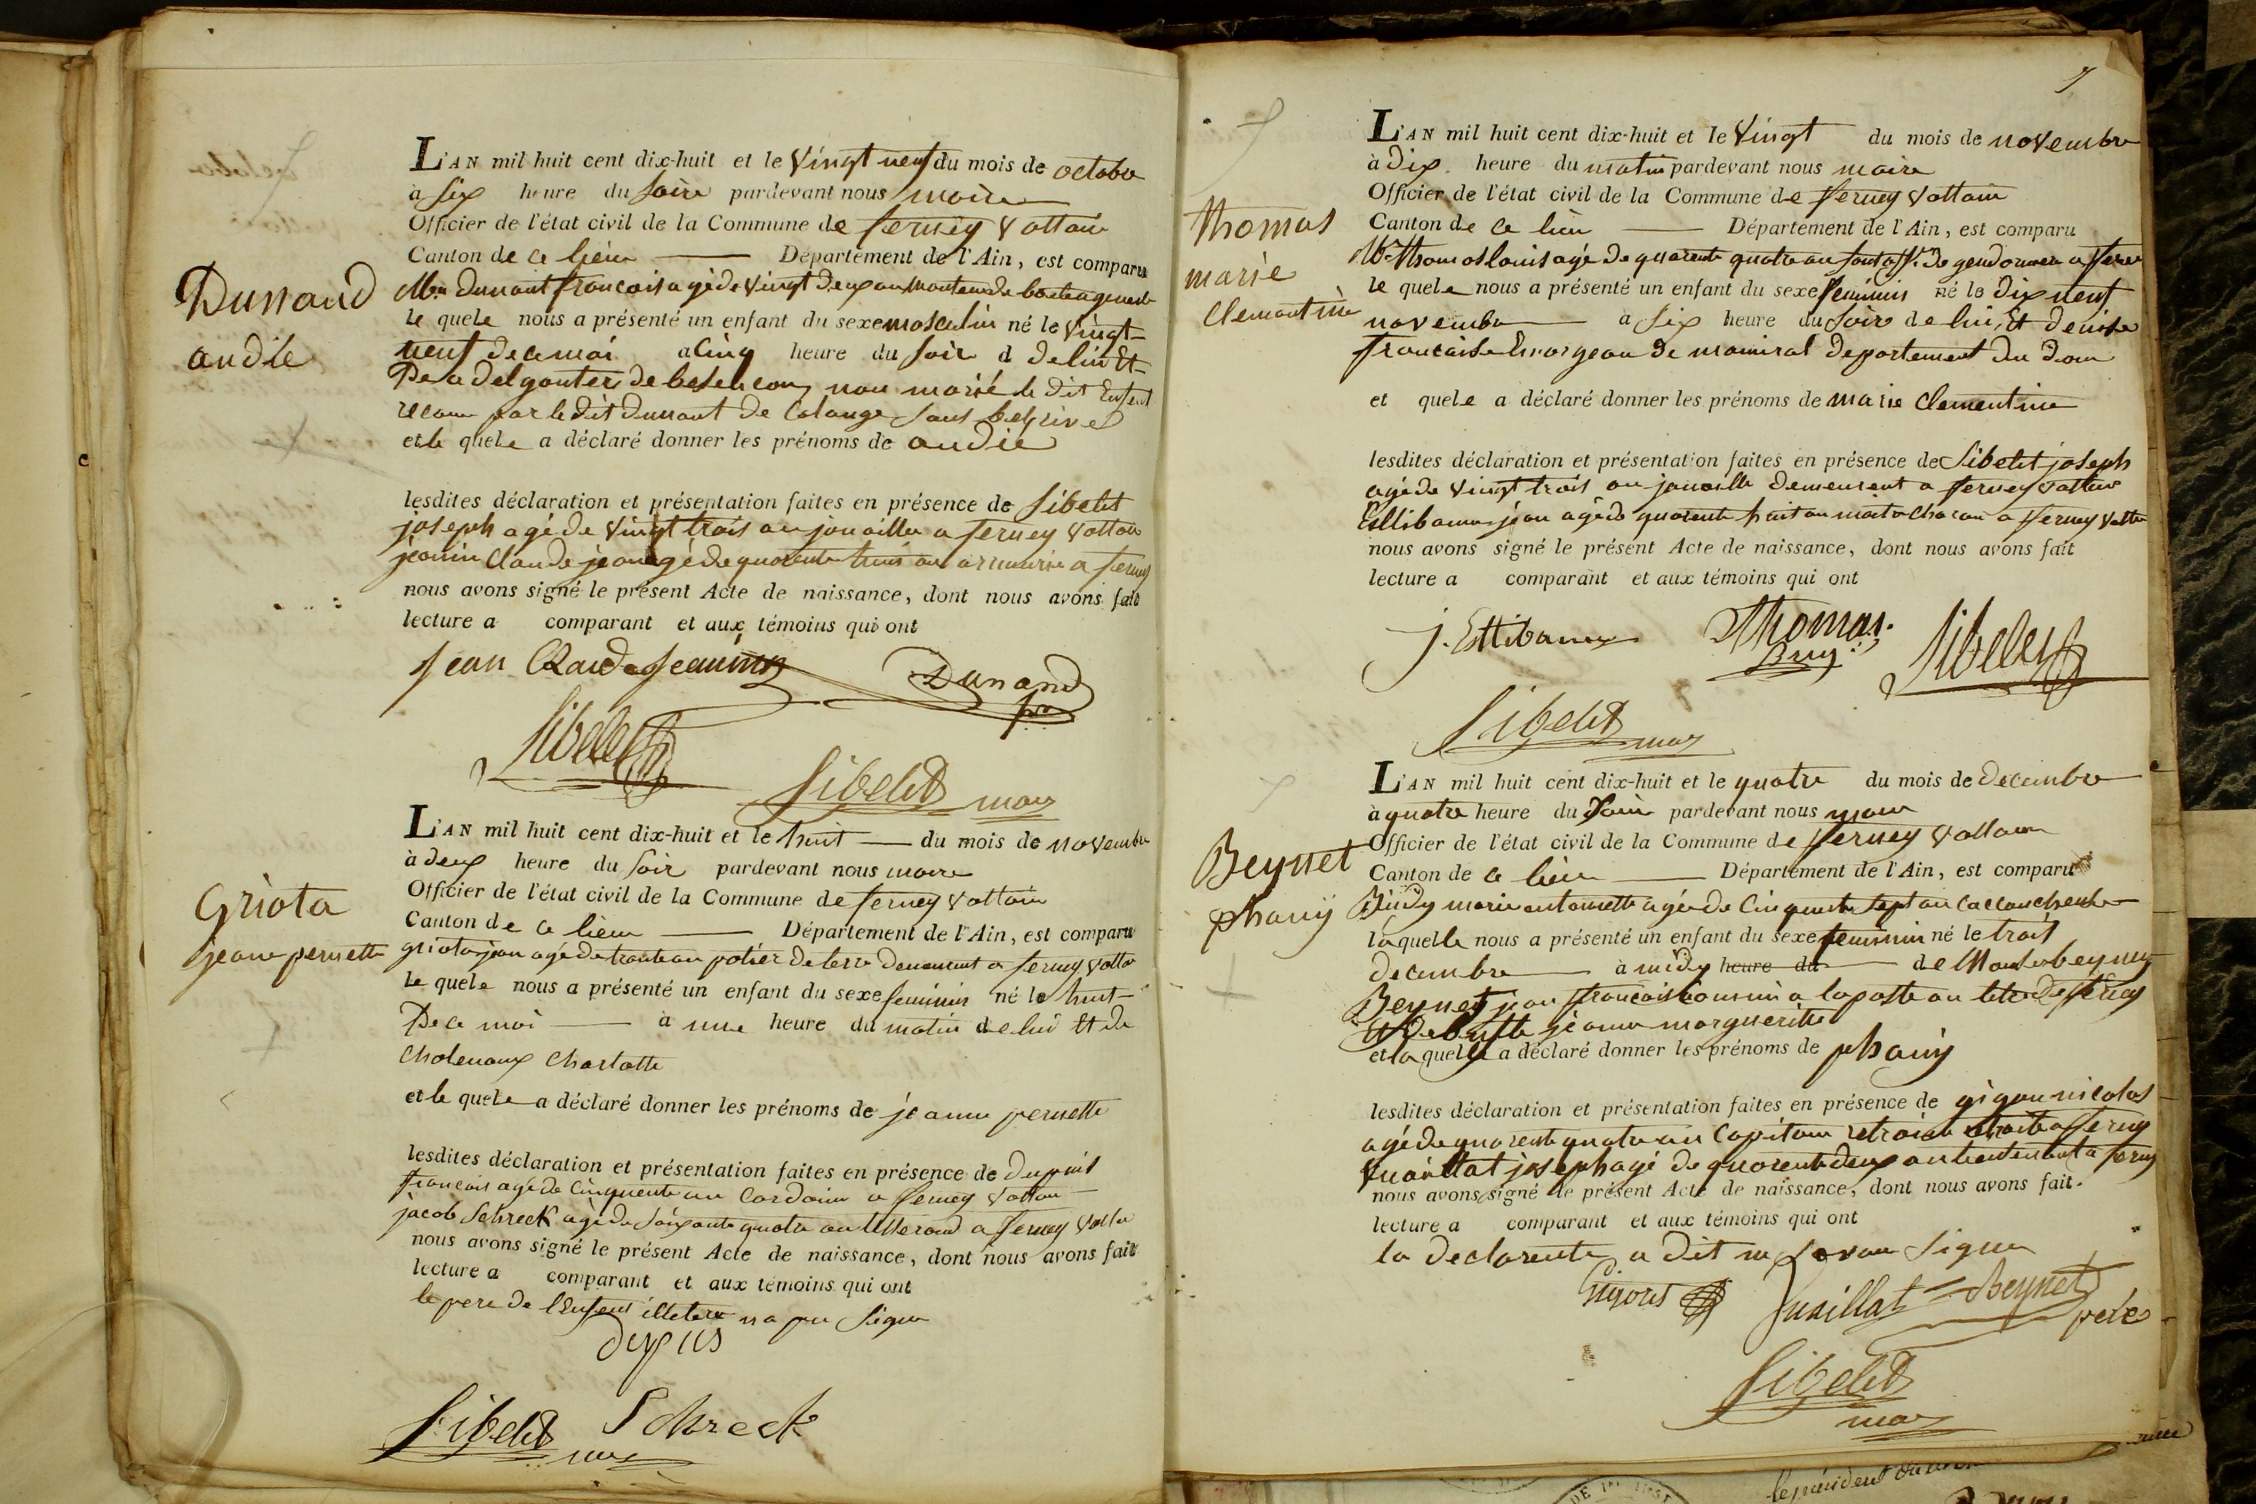 Dunand
andie
L'AN mil huit cent dix-huit et le vingt neuf du mois de octobre
à six heure du soire pardevant nous maire
Officier de l'état civil de la Commune de ferney voltaire
Canton de ce lieu Département de l'Ain, est comparu
Mr. dunant francois agé de vingt deux an monteur de boete
le quele nous a présenté un enfant du sexe masculin né le vingt
neuf de ce moi a cinq heure du soir d de lui Et
De a delgonter de besencon non marié le dit Enfent
reconu par le dit dunant de Colonge
et le quele a déclaré donner les prénoms de andie
lesdites déclaration et présentation faites en présence de Sibelit
joseph agé de vingt trois an jouaillie a ferney voltaire
jeanin Claude jean agé de quarente huit an armurie a ferney
nous avons signé le présent Acte de naissance, dont nous avons fait
lecture a comparant et aux témoins qui ont
Jean Claude Jeannin
Dunand
Sibelit
Sibelit maire
Griota
jeane pernette
L'AN mil huit cent dix-huit et le huit du mois de novembre
à deux heure du soir pardevant nous maire
Officier de l'état civil de la Commune de ferney voltaire
Canton de ce lieu Département de l'Ain, est comparu
griota jean agé de trente an potier de terre demeurent a ferney voltaire
le quele nous a présenté un enfant du sexe feminin né le huit
De ce moi à une heure du matin de lui Et de
Cholenaux Charlotte
et le quele a déclaré donner les prénoms de jeanne pernette
lesdites déclaration et présentation faites en présence de dupuis
francois agé de Cinquente an Cordonie a ferney voltaire
jacob Schreck agé de soixante quatre an tisserand a ferney voltaire
nous avons signé le présent Acte de naissance, dont nous avons fait
lecture a comparant et aux témoins qui ont
le pere de l'Enfent illetere na pu signe
dupuis
Sibelit maire
Schreck
7
thomas
marie
Clemantine
L'AN mil huit cent dix-huit et le vingt du mois de novembre
à dix heure du matin pardevant nous maire
Officier de l'état civil de la Commune de ferney voltaire
Canton de ce lieu Département de l'Ain, est comparu
Mr. Thomas louis agé de quarente quatre an de gendarmerie a ferney
le quele nous a présenté un enfant du sexe feminin né le dix neuf
novembre à six heure du soire de lui, Et denise
francaise de mamirol departement du doux
et quele a déclaré donner les prénoms de marie Clementine
lesdites déclaration et présentation faites en présence de Sibelit joseph
agé de vingt trois an jouaillie demeurent a ferney voltaire
jean agé de quarente huit an a ferney voltaire
nous avons signé le présent Acte de naissance, dont nous avons fait
lecture a comparant et aux témoins qui ont
Thomas
Sibelit
Sibelit maire
Beynet
phany
L'AN mil huit cent dix-huit et le quatre du mois de decembre
à quatre heure du soire pardevant nous maire
Officier de l'état civil de la Commune de ferney voltaire
Canton de ce lieu Département de l'Ain, est comparu
marie antoinette agé de Cinquente sept an
laquelle nous a présenté un enfant du sexe feminin né le trois
decembre à midy heure du de
Beynet jean francois Commis a la poste au letre de ferney
jeanne marguerite
et la quele a déclaré donner les prénoms de phany
lesdites déclaration et présentation faites en présence de gigou nicolas
agé de quarente quatre an Capitaine a ferney
vuaillat joseph agé de quarente deux an lieutenent a ferney
nous avons signé le présent Acte de naissance, dont nous avons fait
lecture a comparant et aux témoins qui ont
la declarente a dit ne savoir signe
Vuaillat
Beynet
pere
Sibelit
maire
le président